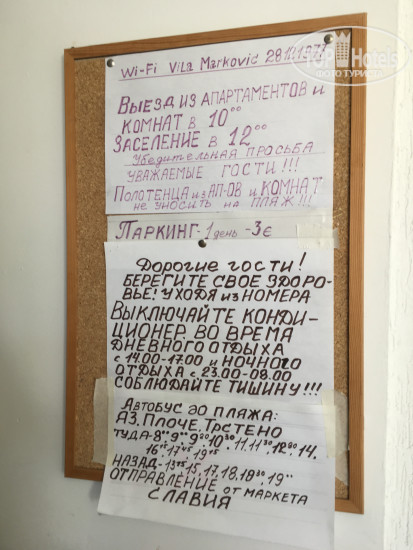 Wi-Fi Vila Marković 28111973
TopHotels
ФОТО ТУРИСТА
ВЫЕЗД ИЗ АПАРТАМЕНТОВ И
КОМНАТ В 10⁰⁰
ЗАСЕЛЕНИЕ В 12⁰⁰
УБЕДИТЕЛЬНАЯ ПРОСЬБА
УВАЖАЕМЫЕ ГОСТИ!!!
ПОЛОТЕНЦА ИЗ АП-ОВ И КОМНАТ
НЕ УНОСИТЬ НА ПЛЯЖ!!!
ПАРКИНГ-1 ДЕНЬ -3€
ДОРОГИЕ ГОСТИ!
БЕРЕГИТЕ СВОЕ ЗДОРО-
ВЬЕ! УХОДЯ ИЗ НОМЕРА
ВЫКЛЮЧАЙТЕ КОНДИ-
ЦИОНЕР. ВО ВРЕМЯ
ДНЕВНОГО ОТДЫХА
С 14.00-17.00 И НОЧНОГО
ОТДЫХА С 23.00-08.00
СОБЛЮДАЙТЕ ТИШИНУ!!!
АВТОБУС ДО ПЛЯЖА:
ЯЗ, ПЛОЧЕ, ТРСТЕНО
ТУДА-
НАЗАД-
ОТПРАВЛЕНИЕ ОТ МАРКЕТА
СЛАВИЯ